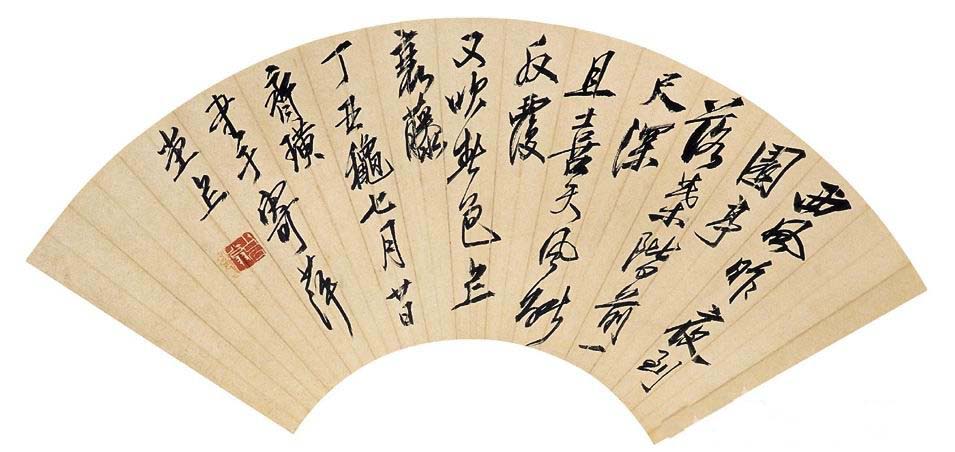 西風昨夜到
園亭
落葉階前一
尺深
且喜天風能
反覆
又吹春色上
衰藤
丁丑龝七月廿日
齊璜
書于寄萍
堂上